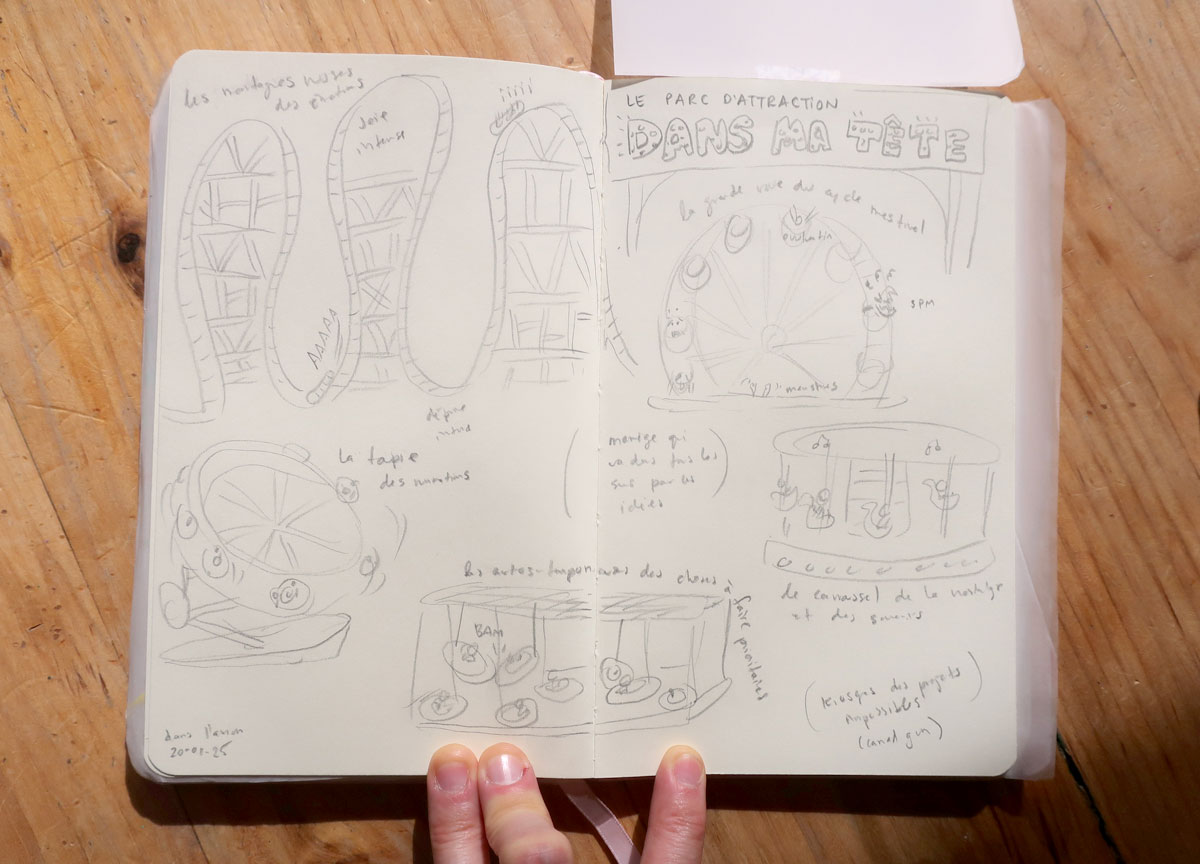 les montagnes russes
des émotions
Joie
intense
¡¡¡¡¡
AAAAA
déprime
LE PARC D'ATTRACTION
DANS MA TÊTE
la grande roue du cycle menstruel
ovulation
SPM
menstrues
la
des
manège qui
va dans tous les
sens par les
idées
les autos-tamponneuses des choses à
faire prioritaires
BAM
le carrousel de la nostalgie
et des
(Kiosques des projets
impossibles
dans l'avion
20-01-25